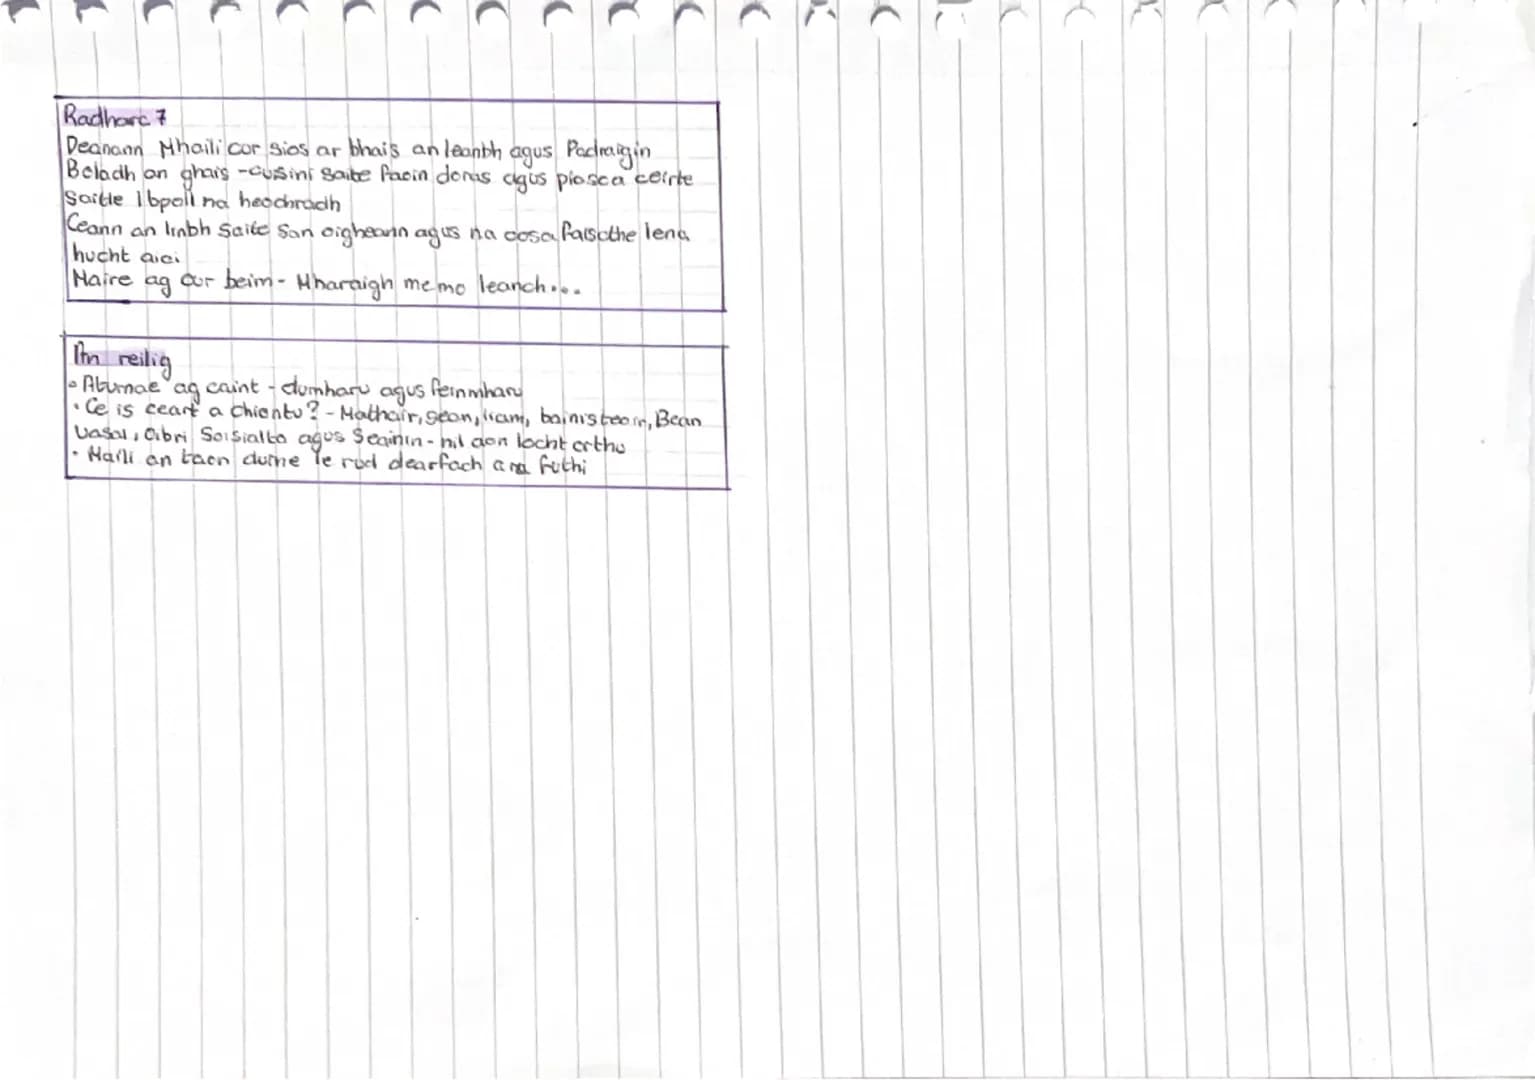 Radharc 7
Deanann Mhaili cur sios ar bhais an leanbh agus Padraigin
Boladh an ghais - cuisini saite faoin doras agus piosca ceirte
Saitle I bpoll na heochradh
Ceann an linbh Saite San oigheann agus na cosa faiscthe lena
hucht aici
Maire ag cur beim - Mharaigh me mo leanch...
An reilig
• Aturnae ag caint - dumharu agus feinmharu
• Ce is ceart a chiontu? - Mathair, sean, liam, bainisteoir, Bean
Uasal, Oibri Soisialta agus Seainin - nil aon locht orthu
• Maili an taon duine le rud dearfach a ra futhi